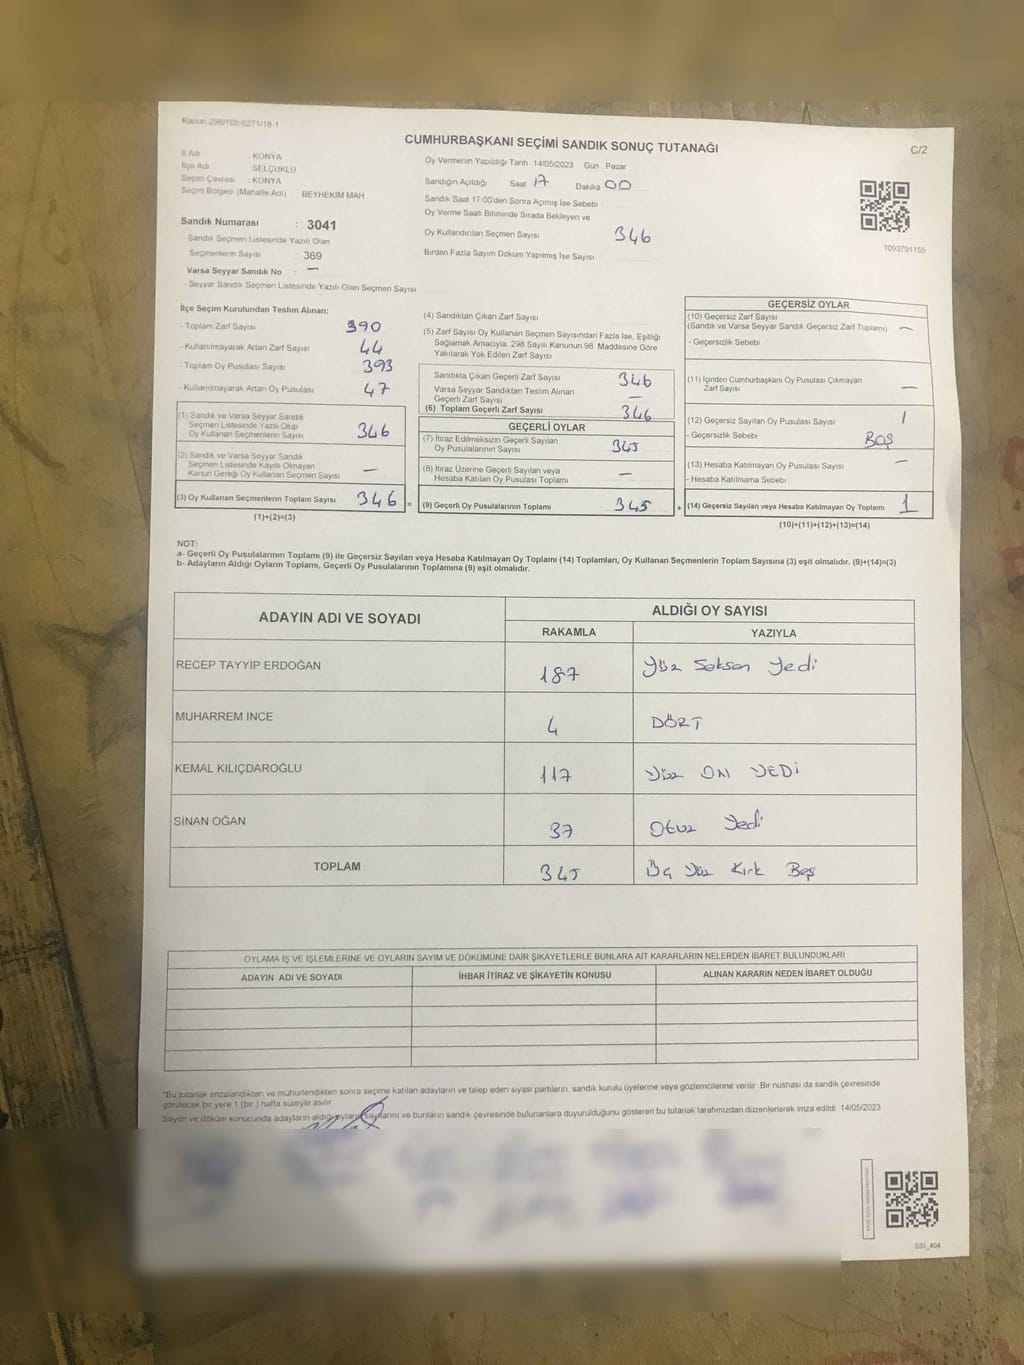 Kanun 298/105-6271/18-1
CUMHURBAŞKANI SEÇİMİ SANDIK SONUÇ TUTANAĞI
C/2
İl Adı KONYA
İlçe Adı SELÇUKLU
Seçim Çevresi : KONYA
Seçim Bölgesi (Mahalle Adı) BEYHEKİM MAH
Sandık Numarası : 3041
Sandık Seçmen Listesinde Yazılı Olan
Seçmenlerin Sayısı : 369
Varsa Seyyar Sandık No : —
- Seyyar Sandık Seçmen Listesinde Yazılı Olan Seçmen Sayısı
Oy Vermenin Yapıldığı Tarih 14/05/2023 Gün : Pazar
Sandığın Açıldığı Saat 17 Dakika 00
Sandık Saat 17:00'den Sonra Açılmış İse Sebebi
Oy Verme Saati Bitiminde Sırada Bekleyen ve
Oy Kullandırılan Seçmen Sayısı 346
Birden Fazla Sayım Döküm Yapılmış İse Sayısı
1093791155
İlçe Seçim Kurulundan Teslim Alınan;
- Toplam Zarf Sayısı 390
- Kullanılmayarak Artan Zarf Sayısı 44
- Toplam Oy Pusulası Sayısı 393
- Kullanılmayarak Artan Oy Pusulası 47
(1) Sandık ve Varsa Seyyar Sandık
Seçmen Listesinde Yazılı Olup
Oy Kullanan Seçmenlerin Sayısı 346
(2) Sandık ve Varsa Seyyar Sandık
Seçmen Listesinde Kayıtlı Olmayan
Kanun Gereği Oy Kullanan Seçmen Sayısı —
(3) Oy Kullanan Seçmenlerin Toplam Sayısı 346 =
(1)+(2)=(3)
(4) Sandıktan Çıkan Zarf Sayısı
(5) Zarf Sayısı Oy Kullanan Seçmen Sayısından Fazla İse, Eşitliği
Sağlamak Amacıyla, 298 Sayılı Kanunun 98. Maddesine Göre
Yakılarak Yok Edilen Zarf Sayısı
Sandıkta Çıkan Geçerli Zarf Sayısı 346
Varsa Seyyar Sandıktan Teslim Alınan
Geçerli Zarf Sayısı —
(6) Toplam Geçerli Zarf Sayısı 346
GEÇERLİ OYLAR
(7) İtiraz Edilmeksizin Geçerli Sayılan
Oy Pusulalarının Sayısı 345
(8) İtiraz Üzerine Geçerli Sayılan veya
Hesaba Katılan Oy Pusulası Toplamı —
(9) Geçerli Oy Pusulalarının Toplamı 345 +
GEÇERSİZ OYLAR
(10) Geçersiz Zarf Sayısı
(Sandık ve Varsa Seyyar Sandık Geçersiz Zarf Toplamı) —
- Geçersizlik Sebebi
(11) İçinden Cumhurbaşkanı Oy Pusulası Çıkmayan
Zarf Sayısı —
(12) Geçersiz Sayılan Oy Pusulası Sayısı 1
- Geçersizlik Sebebi BOŞ
(13) Hesaba Katılmayan Oy Pusulası Sayısı —
- Hesaba Katılmama Sebebi
(14) Geçersiz Sayılan veya Hesaba Katılmayan Oy Toplamı 1
(10)+(11)+(12)+(13)=(14)
NOT:
a- Geçerli Oy Pusulalarının Toplamı (9) ile Geçersiz Sayılan veya Hesaba Katılmayan Oy Toplamı (14) Toplamları, Oy Kullanan Seçmenlerin Toplam Sayısına (3) eşit olmalıdır. (9)+(14)=(3)
b- Adayların Aldığı Oyların Toplamı, Geçerli Oy Pusulalarının Toplamına (9) eşit olmalıdır.
ADAYIN ADI VE SOYADI ALDIĞI OY SAYISI
RAKAMLA YAZIYLA
RECEP TAYYİP ERDOĞAN 187 Yüz Seksen Yedi
MUHARREM İNCE 4 DÖRT
KEMAL KILIÇDAROĞLU 117 Yüz ON YEDİ
SİNAN OĞAN 37 Otuz Yedi
TOPLAM 345 Üç Yüz Kırk Beş
OYLAMA İŞ VE İŞLEMLERİNE VE OYLARIN SAYIM VE DÖKÜMÜNE DAİR ŞİKAYETLERLE BUNLARA AİT KARARLARIN NELERDEN İBARET BULUNDUKLARI
ADAYIN ADI VE SOYADI İHBAR İTİRAZ VE ŞİKAYETİN KONUSU ALINAN KARARIN NEDEN İBARET OLDUĞU
*Bu tutanak imzalandıktan ve mühürlendikten sonra seçime katılan adayların ve talep eden siyasi partilerin sandık kurulu üyelerine veya gözlemcilerine verilir. Bir nüshası da sandık çevresinde
görülecek bir yere 1 (bir) hafta süreyle asılır.
Sayım ve döküm sonucunda adayların aldığı oyların sayılarını ve bunların sandık çevresinde bulunanlara duyurulduğunu gösteren bu tutanak tarafımızdan düzenlenerek imza edildi. 14/05/2023
SSI_404